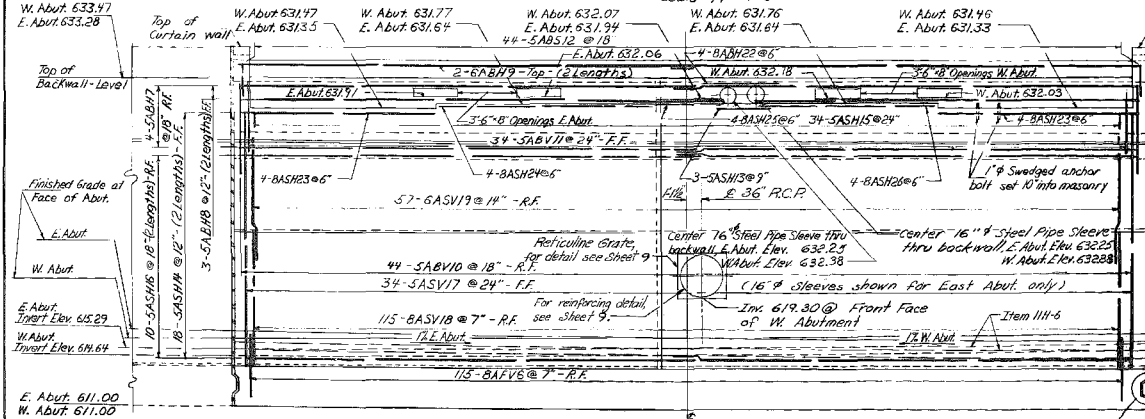 W. Abut. 633.47
E. Abut. 633.28
Top of
Curtain wall
W. Abut. 631.47
E. Abut. 631.35
W. Abut. 631.77
E. Abut. 631.64
W. Abut. 632.07
E. Abut. 631.94
44-5ABS12 @ 18
W. Abut. 631.76
E. Abut. 631.64
W. Abut. 631.46
E. Abut. 631.33
Top of
Backwall-Level
E. Abut. 632.06
4-8ABH22@6"
2-6ABH9-Top-(2 Lengths)
W. Abut. 632.18
3'-6"x8" Openings W. Abut.
E. Abut. 631.91
W. Abut. 632.03
4-5ABH7
@ 18" R.F.
3'-6"x8" Openings E. Abut.
4-8ASH25@6"
34-5ASH15@24"
4-8ASH23@6"
34-5ABV11@24"-F.F.
4-8ASH23@6"
4-8ASH24@6"
3-5ASH13@9"
4-8ASH26@6"
1"φ Swedged anchor
bolt set 10" into masonry
Finished Grade at
Face of Abut.
E. Abut.
W. Abut.
10-5ASH16 @ 18"-(2 Lengths)-R.F.
18-5ASH14 @ 12"-(2 Lengths)-F.F.
3-5ABH8 @ 12"-(2 Lengths)
57-6ASV19 @ 14"-R.F.
℄ 36" R.C.P.
Reticuline Grate,
for detail see Sheet 9
Center 16"φ Steel Pipe Sleeve thru
backwall, E. Abut. Elev. 632.25
W. Abut. Elev. 632.38
Center 16"φ Steel Pipe Sleeve
thru backwall, E. Abut. Elev. 632.25
W. Abut. Elev. 632.38
44-5ABV10 @ 18"-R.F.
34-5ASV17 @ 24"-F.F.
(16"φ Sleeves shown for East Abut. only)
For reinforcing detail,
see Sheet 9.
Inv. 619.30 @ Front Face
of W. Abutment
Item 11H-6
E. Abut.
Invert Elev. 615.29
W. Abut.
Invert Elev. 614.64
115-8ASV18 @ 7"-R.F.
1% E. Abut.
1% W. Abut.
115-8AFV6 @ 7"-R.F.
E. Abut. 611.00
W. Abut. 611.00
℄